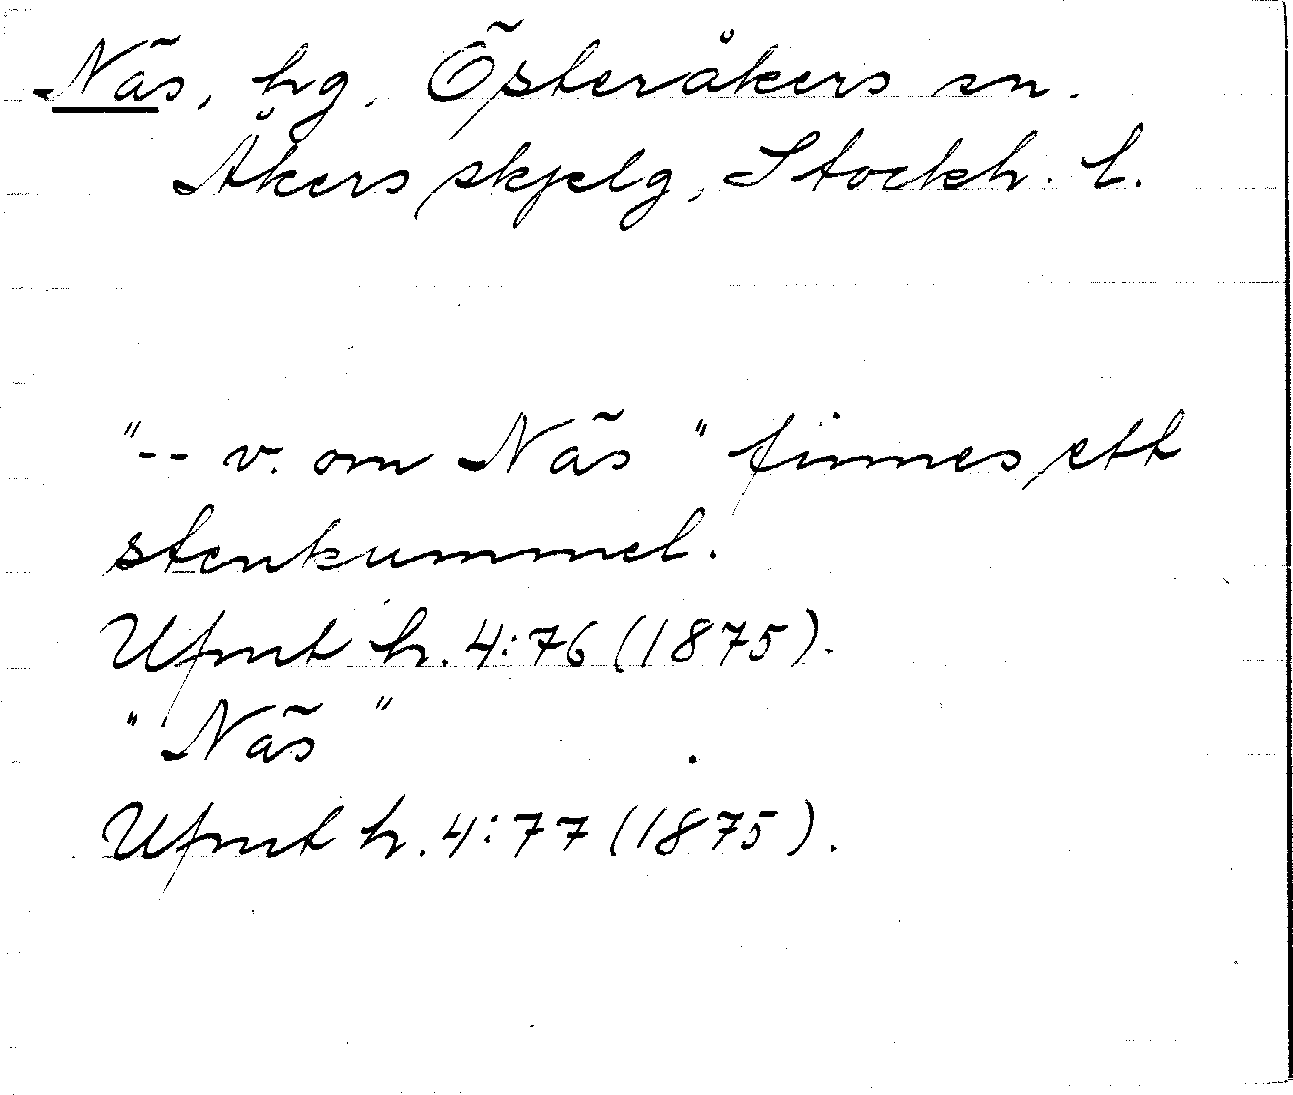 Näs, hg. Österåkers sn.
Åkers skjelg, Stockh. l.
"-- v. om Näs" finnes ett
stenkummel.
Ufmt h. 4:76 (1875).
"Näs"
Ufmt h. 4:77 (1875).